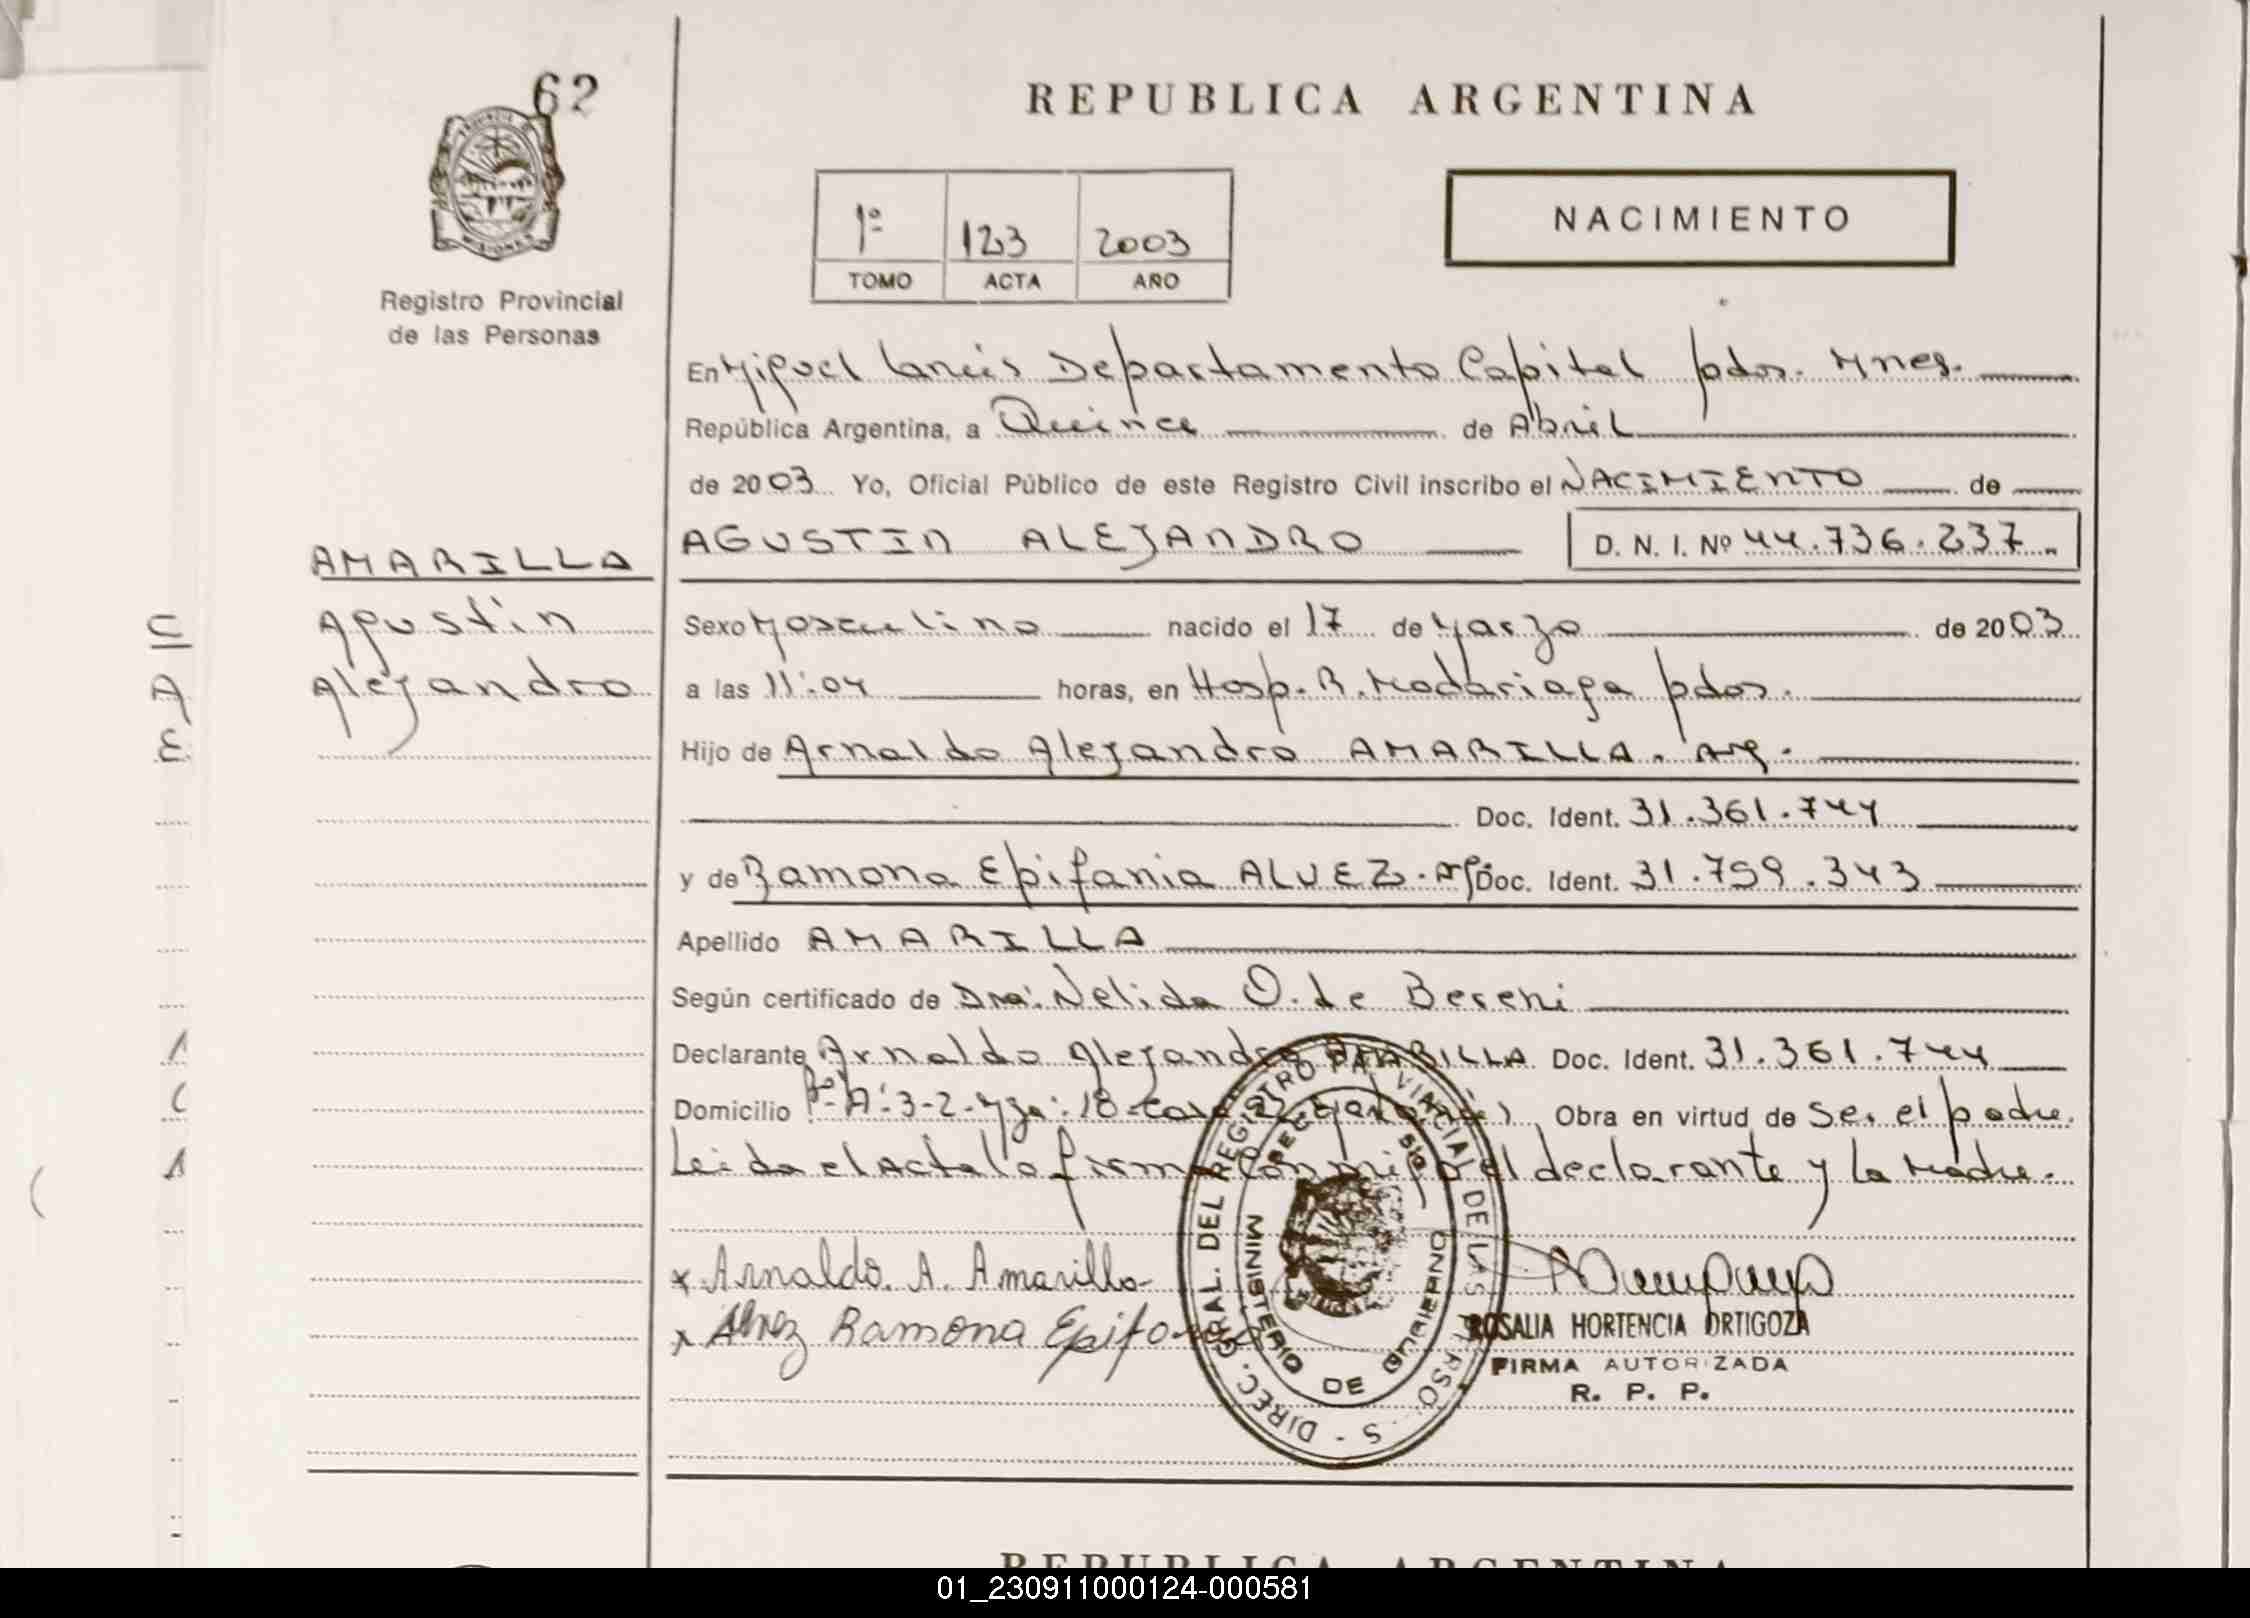 62
PROVINCIA D
MISIONES
Registro Provincial
de las Personas
REPUBLICA ARGENTINA
1º 123 2003
TOMO ACTA AÑO
NACIMIENTO
En Miguel Lanús Departamento Capital pdas. Mnes.
República Argentina, a Quince de Abril
de 2003 Yo, Oficial Público de este Registro Civil inscribo el NACIMIENTO de
AMARILLA
AGUSTIN ALEJANDRO D. N. I. Nº 44.736.237
Agustin
Alejandro
Sexo Masculino nacido el 17 de Marzo de 2003
a las 11:04 horas, en Hosp. R. Madariaga pdas.
Hijo de Arnaldo Alejandro AMARILLA. Arg.
Doc. Ident. 31.361.744
y de Ramona Epifania ALVEZ. Arg. Doc. Ident. 31.759.343
Apellido AMARILLA
Según certificado de Dra. Nelida O. de
Declarante Arnaldo Alejandro AMARILLA Doc. Ident. 31.361.744
Domicilio 3-2- Mza: 18- Casa Obra en virtud de Ser el padre.
Leida el Acta la firma conmigo el declarante y la Madre.
x Arnaldo. A. Amarilla
x Alvez Ramona Epifania
DIREC. GRAL. DEL REGISTRO PROVINCIAL DE LAS PERSONAS
MINISTERIO DE GOBIERNO
ROSALIA HORTENCIA ORTIGOZA
FIRMA AUTORIZADA
R. P. P.
REPUBLICA ARGENTINA
01_230911000124-000581